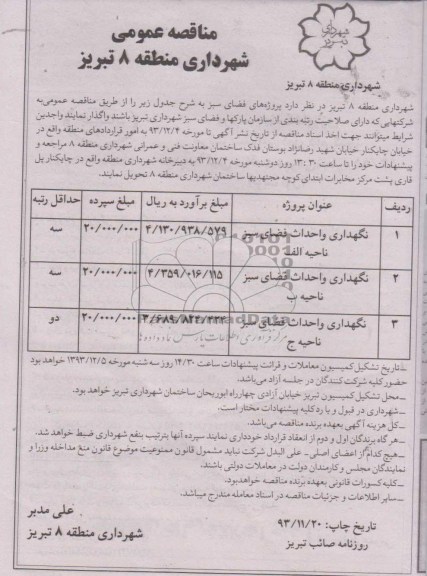 شهرداری
تبریز
مناقصه عمومی
شهرداری منطقه ۸ تبریز
شهرداری منطقه ۸ تبریز
شهرداری منطقه ۸ تبریز در نظر دارد پروژه‌های فضای سبز به شرح جدول زیر را از طریق مناقصه عمومی‌به
شرکتهایی که دارای صلاحیت رتبه بندی از سازمان پارکها و فضای سبز شهرداری تبریز باشند واگذار نمایند واجدین
شرایط میتوانند جهت اخذ اسناد مناقصه از تاریخ نشر آگهی تا مورخه ۹۳/۱۲/۴ به امور قراردادهای منطقه واقع در
خیابان چایکنار خیابان شهید رضانژاد بوستان فدک ساختمان معاونت فنی و عمرانی شهرداری منطقه ۸ مراجعه و
پیشنهادات خود را تا ساعت ۱۳:۳۰ روز دوشنبه مورخه ۹۳/۱۲/۴ به دبیرخانه شهرداری منطقه واقع در چایکنار پل
قاری پشت مرکز مخابرات ابتدای کوچه مجتهدیها ساختمان شهرداری منطقه ۸ تحویل نمایند.
ردیف عنوان پروژه مبلغ برآورد به ریال مبلغ سپرده حداقل رتبه
۱ نگهداری واحداث فضای سبز ناحیه الف ۴/۱۳۰/۹۳۸/۵۷۹ ۲۰/۰۰۰/۰۰۰ سه
۲ نگهداری واحداث فضای سبز ناحیه ب ۴/۳۵۹/۰۱۶/۱۱۵ ۲۰/۰۰۰/۰۰۰ سه
۳ نگهداری واحداث فضای سبز ناحیه ج ۲۰/۰۰۰/۰۰۰ دو
ـ تاریخ تشکیل کمیسیون معاملات و قرائت پیشنهادات ساعت ۱۴/۳۰ روز سه شنبه مورخه ۱۳۹۳/۱۲/۵ خواهد بود
حضور کلیه شرکت کنندگان در جلسه آزاد می‌باشد.
ـ محل تشکیل کمیسیون تبریز خیابان آزادی چهارراه ابوریحان ساختمان شهرداری تبریز خواهد بود.
ـ شهرداری در قبول و یا رد کلیه پیشنهادات مختار است.
ـ کل هزینه آگهی بعهده برنده مناقصه می‌باشد.
ـ هر گاه برندگان اول و دوم از انعقاد قرارداد خودداری نمایند سپرده آنها بترتیب بنفع شهرداری ضبط خواهد شد.
ـ هیچ کدام از اعضای اصلی ـ علی البدل شرکت نباید مشمول قانون ممنوعیت موضوع قانون منع مداخله وزرا و
نمایندگان مجلس و کارمندان دولت در معاملات دولتی باشند.
ـ کلیه کسورات قانونی بعهده برنده مناقصه خواهد بود.
ـ سایر اطلاعات و جزئیات مناقصه در اسناد معامله مندرج میباشد.
تاریخ چاپ: ۹۳/۱۱/۲۰
روزنامه صائب تبریز
علی مدبر
شهرداری منطقه ۸ تبریز